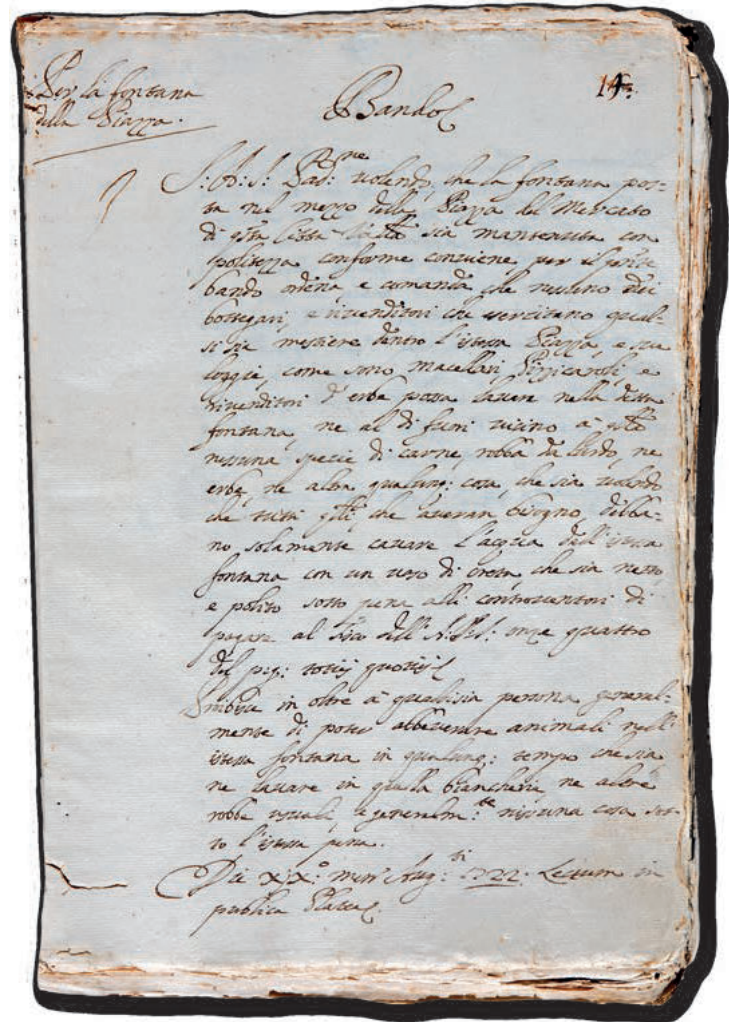 Per la fontana
della Piazza.
Bando
14
S: A: S: Pad:ne uolendo, che la fontana pos=
ta nel mezzo della Piazza del Mercato
di q.ta Città sia mantenuta con
politezza conforme conviene, per il p̃nte
bando ordina e comanda, che nessuno dei
bottegari, e riuenditori che esercitano qual=
si sia mestiere dentro l'istessa Piazza, e sue
loggie, come sono macellari Pizzicaroli e
riuenditori d'erbe possa lauare nella detta
fontana, ne al di fuori uicino à
nessuna specie di carne, robba da lardo, ne
erbe, ne altra qualunq: cosa, che sia uolendo
che tutti q̃lli, che aueran bisogno, debba=
no solamente cauare l'acqua dall'istessa
fontana con un uaso di creta, che sia netto,
e polito sotto pena alli controuentori di
pagare al fisco dell' A: S: onze quattro
toties quoties
Proibisce in oltre à qualsisia persona general=
mente di poter abbeuerare animali nell'
istessa fontana in qualunq: tempo che sia
ne lauare in quella biancherie, ne altre
robbe usuali, e generalm:te nissuna cosa sot=
to l'istessa pena.
Die XiX:o mens Aug:ti 1722. Lectum in
publica Platea